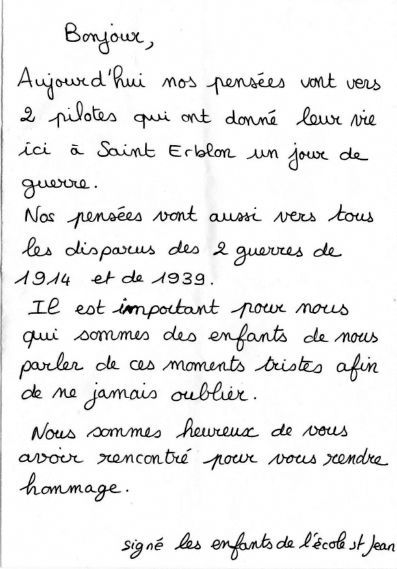 Bonjour,
Aujourd'hui nos pensées vont vers
2 pilotes qui ont donné leur vie
ici à Saint Erblon un jour de
guerre.
Nos pensées vont aussi vers tous
les disparus des 2 guerres de
1914 et de 1939.
Il est important pour nous
qui sommes des enfants de nous
parler de ces moments tristes afin
de ne jamais oublier.
Nous sommes heureux de vous
avoir rencontré pour vous rendre
hommage.
signé les enfants de l'école St Jean